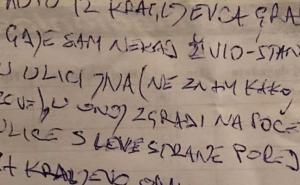 AUTO IZ KRALJEVCA GRA
GDJE SAM NEKAD ŽIVIO-STAN
U ULICI JNA (NE ZNAM KAKO
ZOVE) U ONOJ ZGRADI NA POČE
ULICE S LEVE STRANE PORED
KRALJEVO